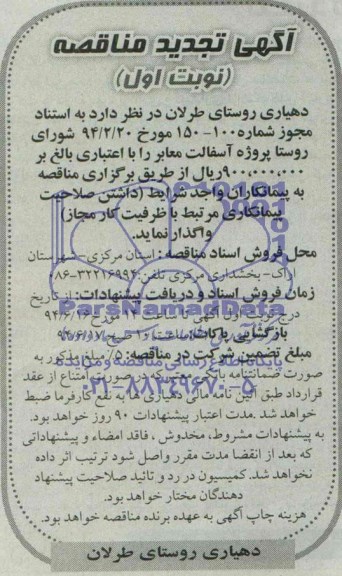 آگهی تجدید مناقصه
(نوبت اول)
دهیاری روستای طرلان در نظر دارد به استناد
مجوز شماره ۱۰۰-۱۵۰ مورخ ۹۴/۲/۲۰ شورای
روستا پروژه آسفالت معابر را با اعتباری بالغ بر
۹۰۰,۰۰۰,۰۰۰ریال از طریق برگزاری مناقصه
به پیمانکاران واجد شرایط (داشتن صلاحیت
پیمانکاری مرتبط با ظرفیت کار مجاز)
واگذار نماید.
محل فروش اسناد مناقصه: استان مرکزی- شهرستان
اراک- بخشداری مرکزی تلفن: ۳۲۲۱۶۹۹۴-۰۸۶
زمان فروش اسناد و دریافت پیشنهادات: از تاریخ
درج نوبت اول آگهی تا ساعت مورخ
بازگشایی پاکات: ساعت ۱۰ صبح
مبلغ تضمین شرکت در مناقصه: ۵٪ مبلغ مذکور به
صورت ضمانتنامه بانکی معتبر که در صورت امتناع از عقد
قرارداد طبق آئین نامه مالی دهیاری ها به نفع کارفرما ضبط
خواهد شد .مدت اعتبار پیشنهادات ۹۰ روز خواهد بود.
به پیشنهادات مشروط، مخدوش ، فاقد امضاء و پیشنهاداتی
که بعد از انقضا مدت مقرر واصل شود ترتیب اثر داده
نخواهد شد. کمیسیون در رد و تائید صلاحیت پیشنهاد
دهندگان مختار خواهد بود.
هزینه چاپ آگهی به عهده برنده مناقصه خواهد بود.
دهیاری روستای طرلان
ParsNamadData
پایگاه اطلاع رسانی مناقصه و مزایده
۰۲۱-۸۸۳۴۹۶۷۰-۵